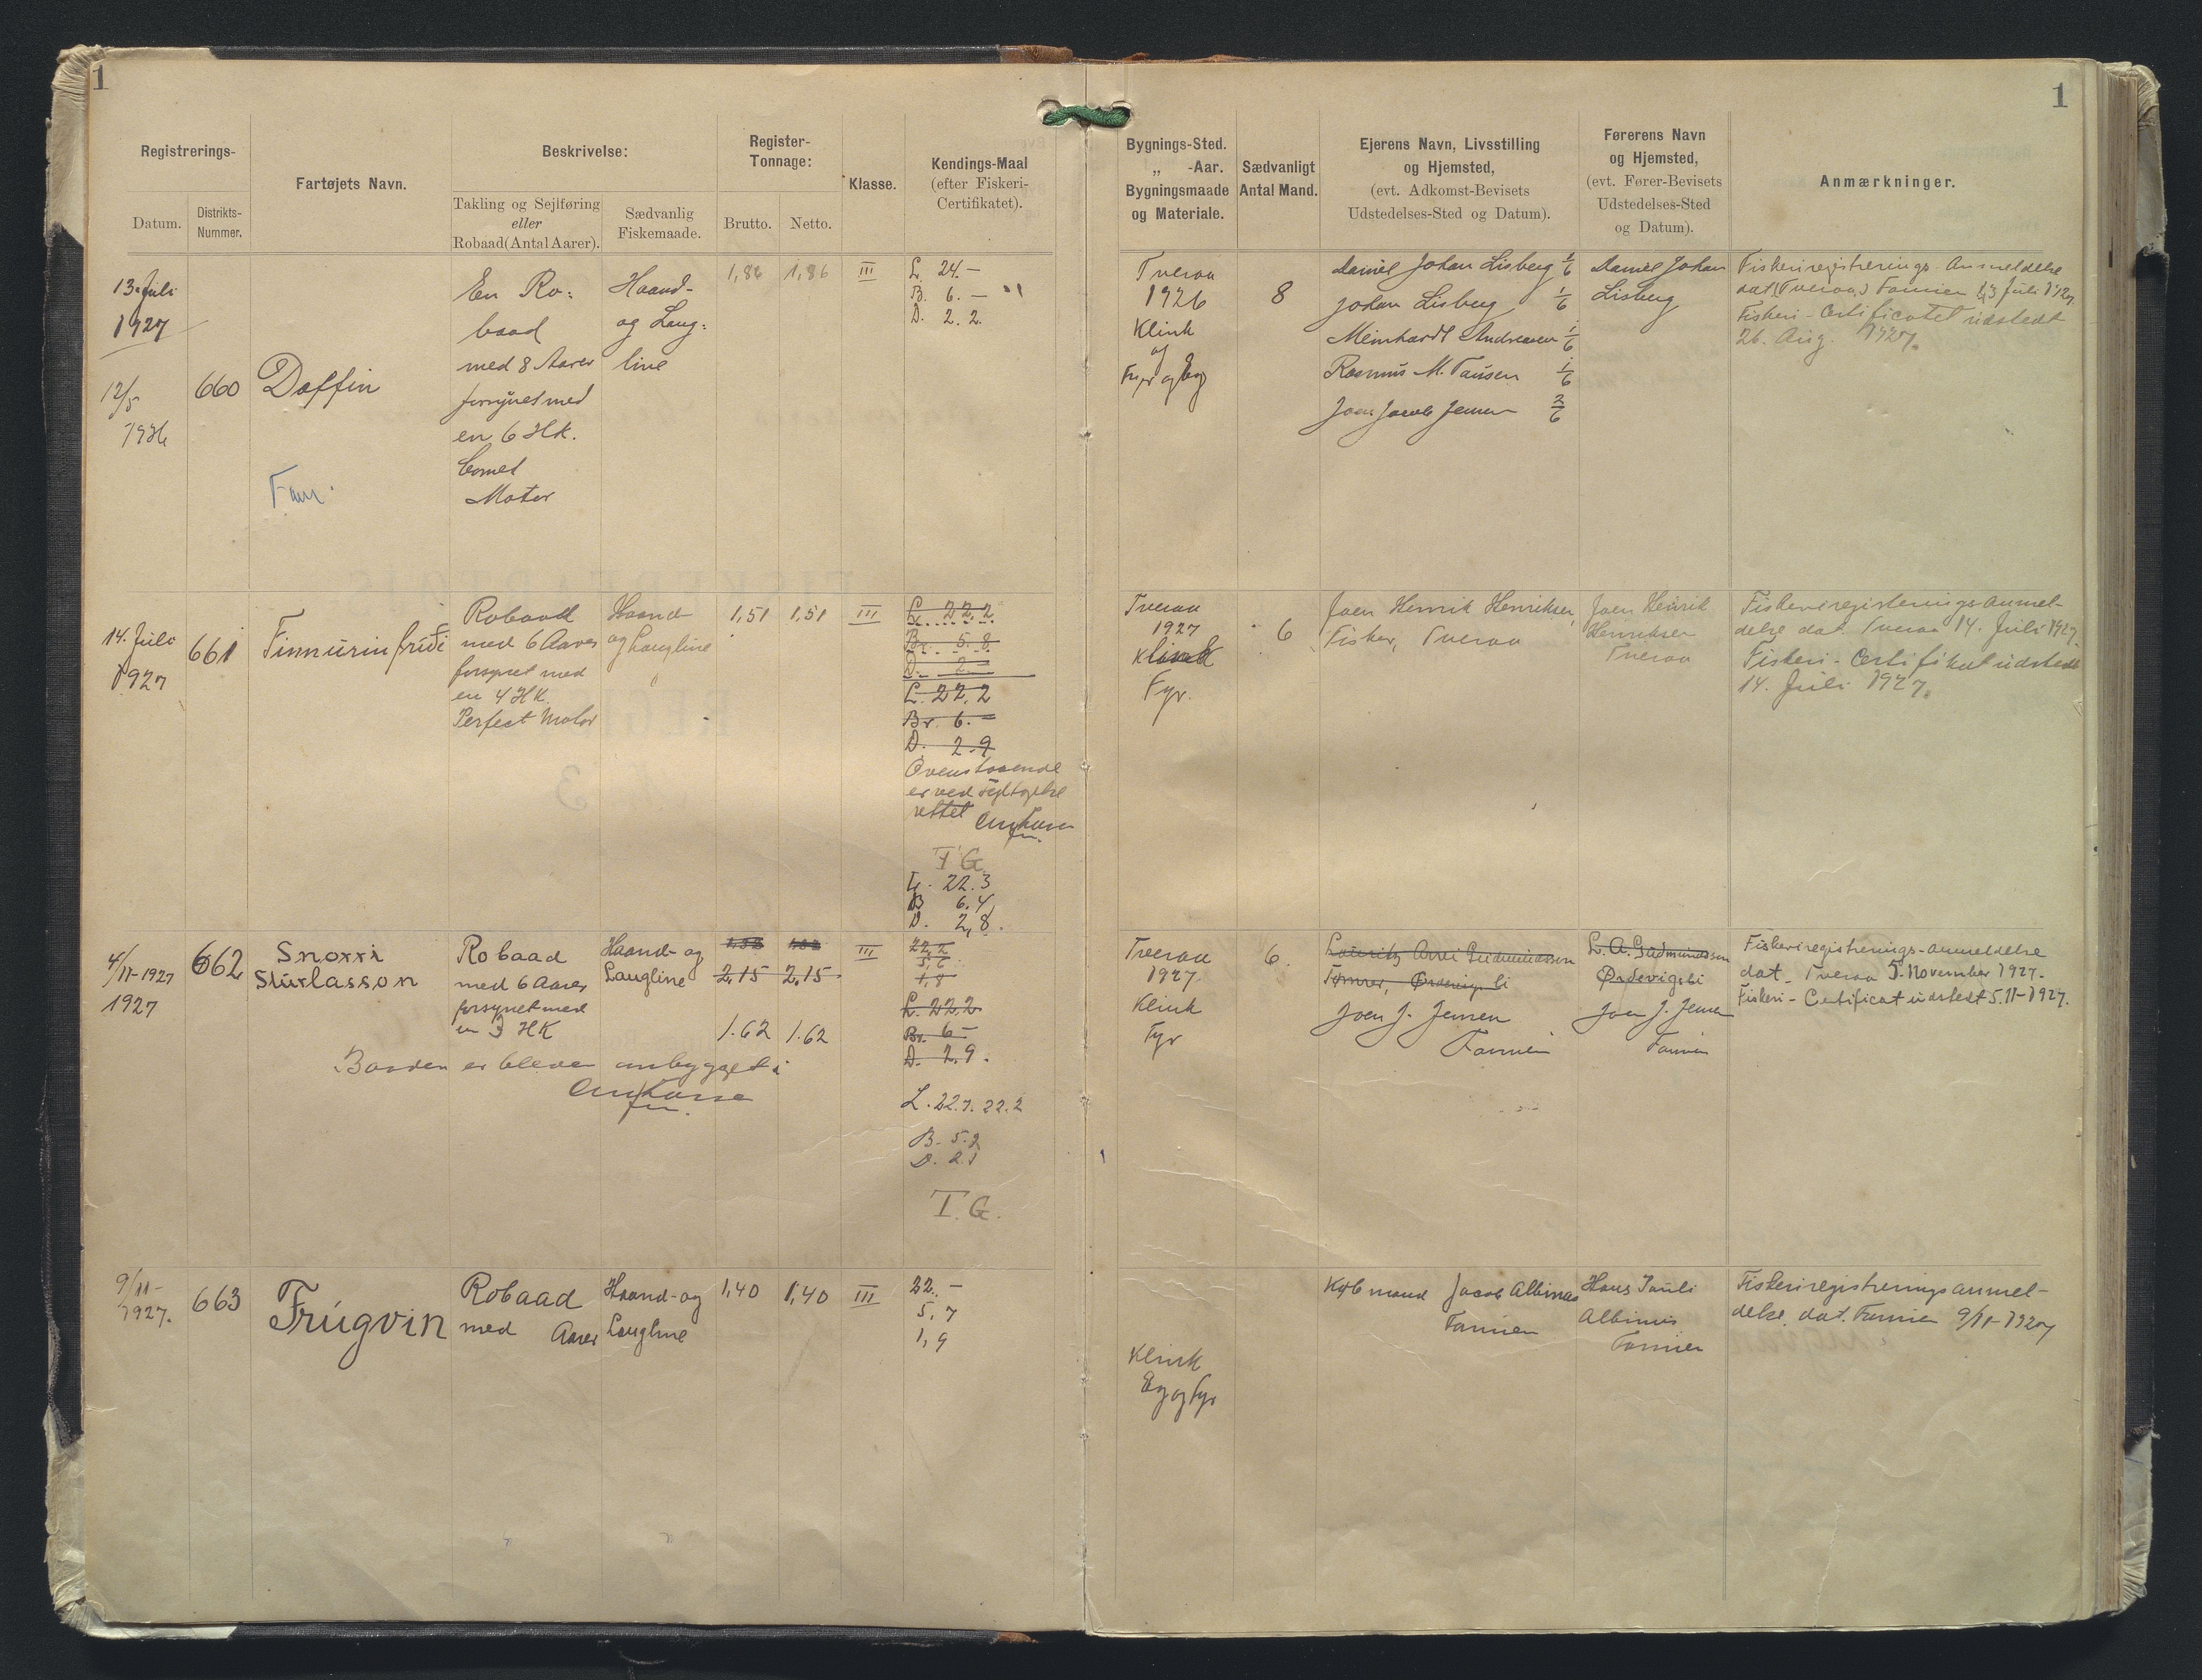 1
1
Registrerings-
Datum.
Distrikts-
Nummer.
Fartøjets Navn.
Beskrivelse:
Takling og Sejlføring
eller
Robaad (Antal Aarer).
Sædvanlig
Fiskemaade.
Register-
Tonnage:
Brutto.
Netto.
Klasse.
Kendings-Maal
(efter Fiskeri-
Certifikatet).
Bygnings-Sted.
„ -Aar.
Bygningsmaade
og Materiale.
Sædvanligt
Antal Mand.
Ejerens Navn, Livsstilling
og Hjemsted,
(evt. Adkomst-Bevisets
Udstedelses-Sted og Datum).
Førerens Navn
og Hjemsted,
(evt. Fører-Bevisets
Udstedelses-Sted
og Datum).
Anmærkninger.
13. Juli
1927
12/5
1936
660
Daffin
En Ro-
baad
med 8 Aarer
forsynet med
en 6 HK.
Comet
Motor
Haand-
og Lang-
line
1,86
1,86
III
L. 24.–
B. 6.–
D. 2.2.
Tveraa
1926
Klink
af
Fyr og Eg
8
Daniel Johan Lisberg 1/6
Johan Lisberg 1/6
Meinhardt Andreasen 1/6
Rasmus M. Pausen 1/6
Joen Jacob Jensen 2/6
Daniel Johan
Lisberg
Fiskeriregistrerings-Anmeldelse
dat. (Tveraa) 13 Juli 1927.
Fiskeri-Certificatet udstedt
26. Aug. 1927.
14. Juli
1927
661
Finnurin fríði
Robaad
med 6 Aarer
forsynet med
en 4 HK.
Perfect Motor
Haand-
og Langline
1,51
1,51
III
L. 22,2
Br. 5.8
D. 2
L. 22,2
Br. 6.–
D. 2.9
Ovenstaaende
er ved
rettet
T.G.
L. 22.3
B 6.4
D. 2,8.
Tveraa
1927
Klink
Fyr.
6
Joen Henrik Henriksen,
Fisker, Tveraa
Joen Henrik
Henriksen
Tveraa
Fiskeriregistreringsanmel-
delse dat. Tveraa 14. Juli 1927.
Fiskeri-Certifikat udstedt
14. Juli 1927.
4/11-1927
1927
662
Snorri
Sturlasson
Robaad
med 6 Aarer
forsynet med
en 3 HK
Haand- og
Langline
2,15
2,15
1.62
1.62
III
22,2
5,6
1,8
L. 22,2
Br. 6–
D. 2,9.
Baaden er bleven ombygget i
L. 22.7. 22.2
B. 5.9
D. 2.1
T.G.
Tveraa
1927.
Klink
Fyr
6.
Tømrer,
Joen J. Jensen
L. A. Gudmundsson
Ørdevigsli
Joen J. Jensen
Fiskeriregistrerings-anmeldelse
dat. Tveraa 5. November 1927.
Fiskeri-Certificat udstedt 5.11-1927.
9/11-
1927.
663
Frúgvin
Robaad
med Aarer
Haand- og
Langline
1,40
1,40
III
22.–
5,7
1,9
Klink
Eg og Fyr
Købmand Jacob Albinus
Hans Pauli
Albinus
Fiskeriregistreringsanmel-
delse dat. 9/11-1927